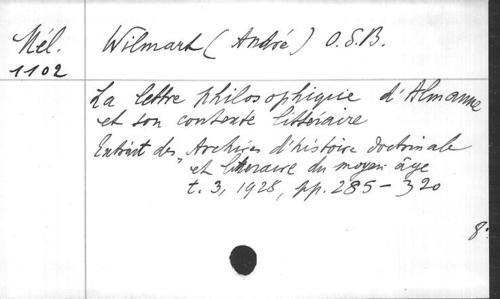 Mél. Wilmart (André) O.S.B.
1102
La lettre philosophique d'Almanne
et son contexte littéraire
Extrait des „Archives d'histoire doctrinale
et litteraire du moyen âge
t. 3, 1928, pp. 285-320
8°